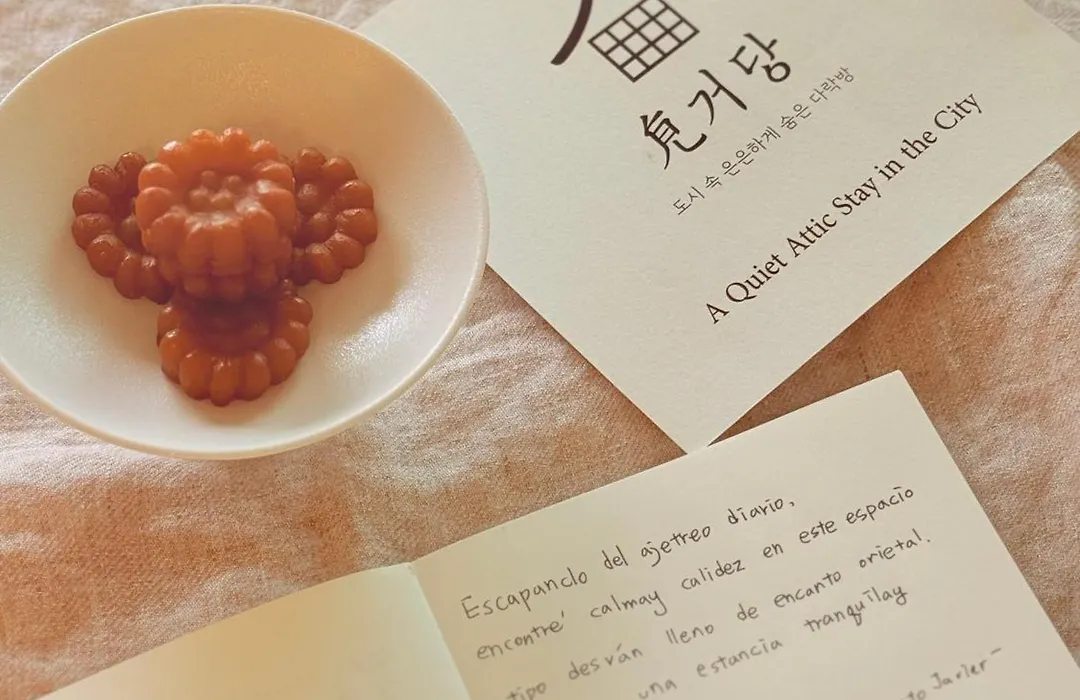 見거당
도시 속 은은하게 숨은 다락방
A Quiet Attic Stay in the City
Escapanclo del ajetreo diario,
encontré calmay calidez en este espacio
tipo desván lleno de encanto orietal.
una estancia tranquilay
to Javier-